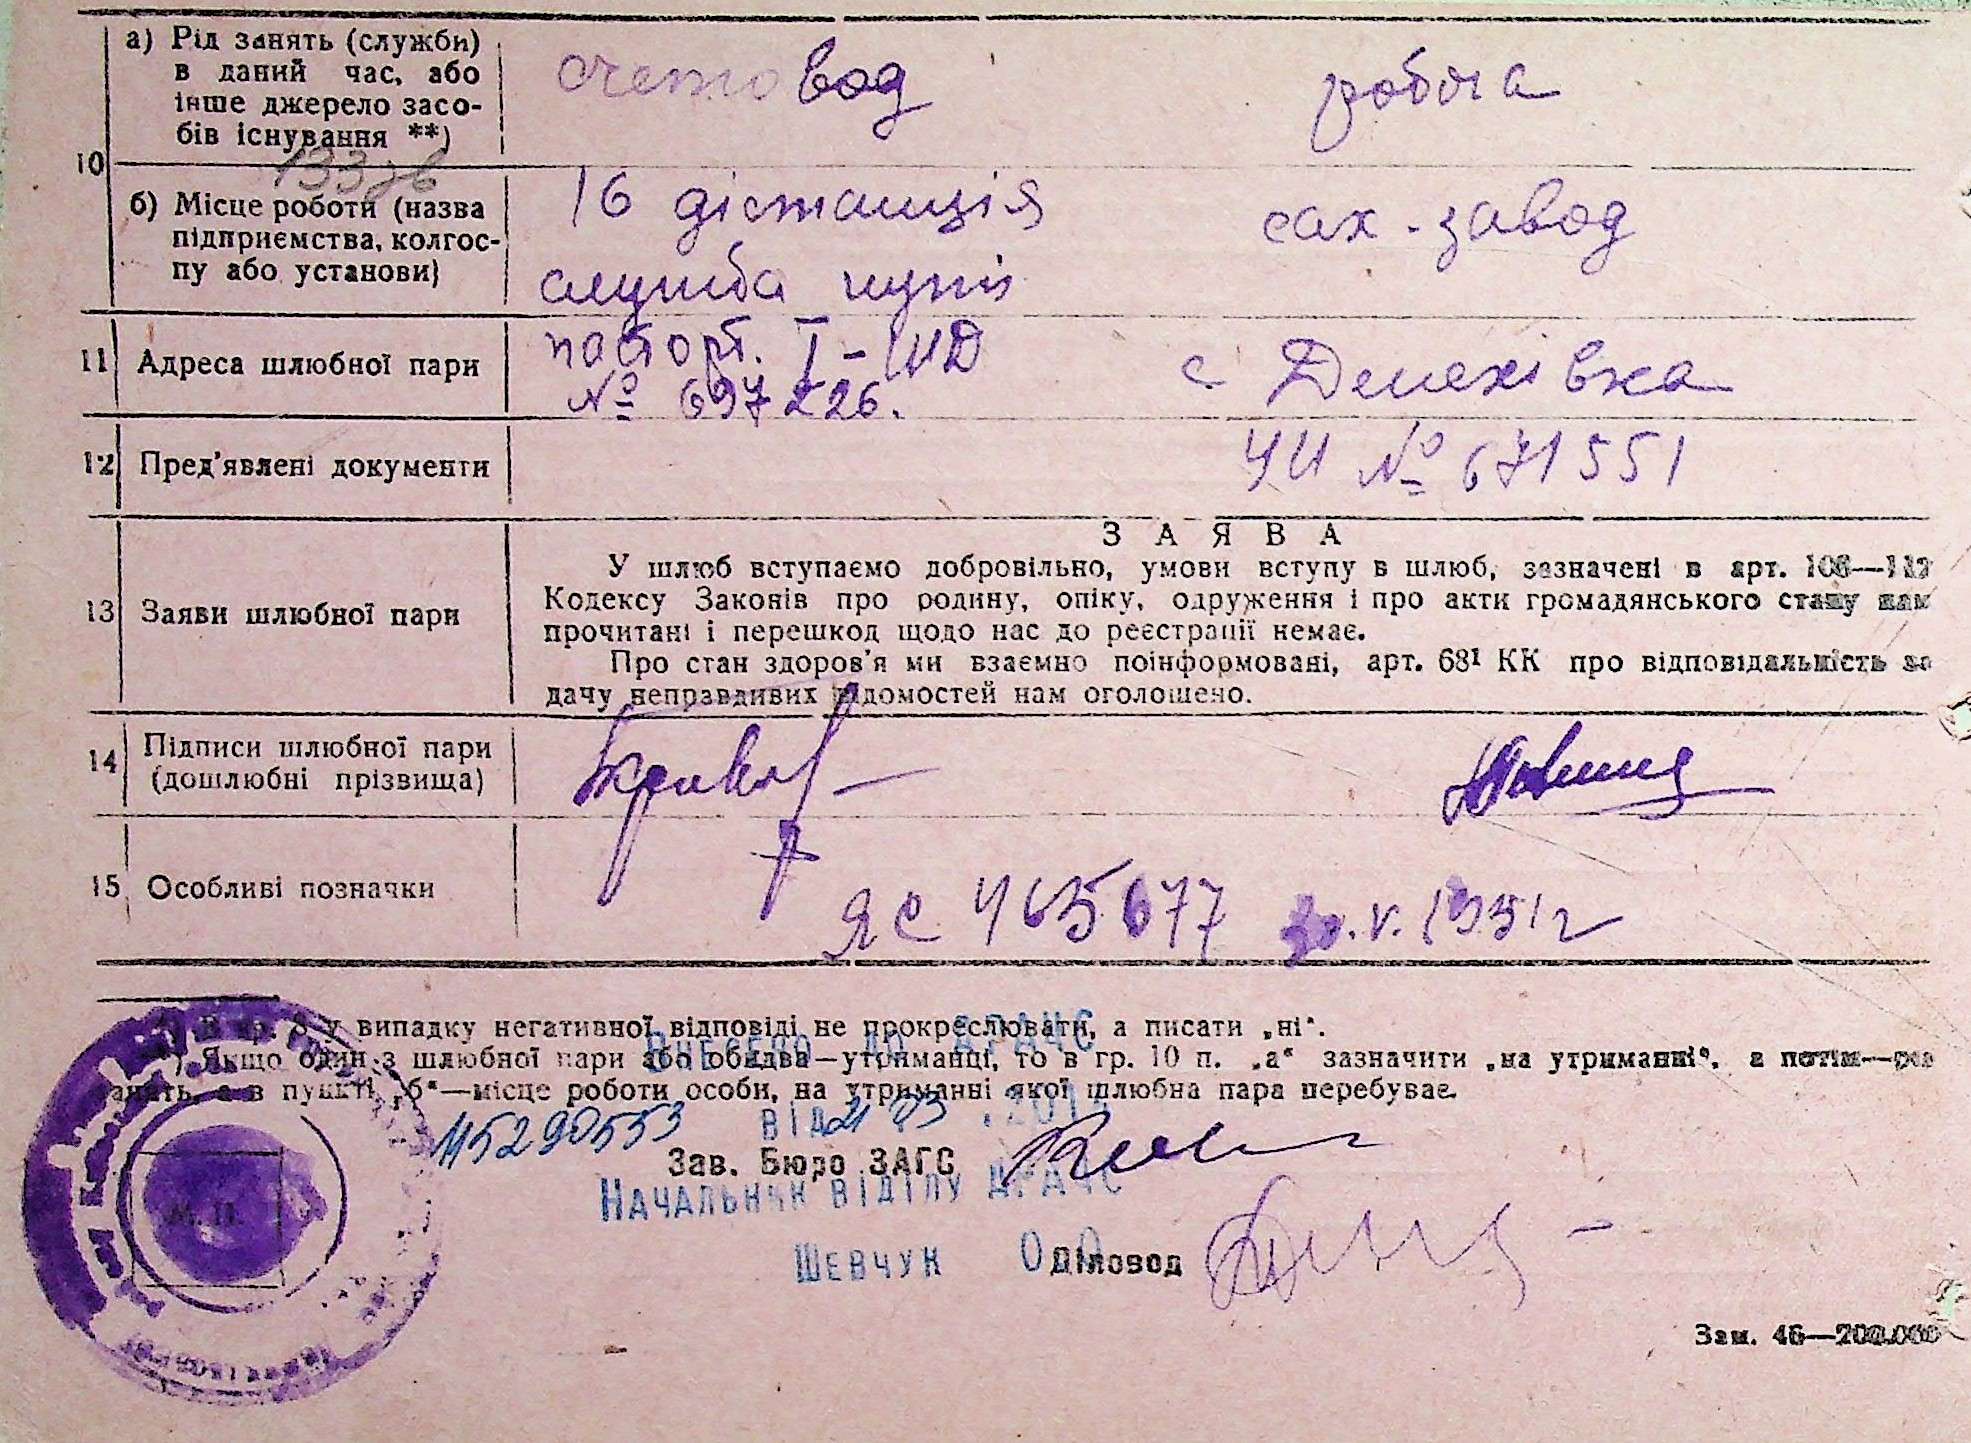 10
а) Рід занять (служби)
в даний час, або
інше джерело засо-
бів існування **)
счетовод
робоча
б) Місце роботи (назва
підприємства, колгос-
пу або установи)
16 дістанція
служба путі
сах.-завод
11
Адреса шлюбної пари
паспорт. I-ЧД
№ 697226.
с Демехівка
12
Пред'явлені документи
ЧИ № 671551
13
Заяви шлюбної пари
ЗАЯВА
У шлюб вступаємо добровільно, умови вступу в шлюб, зазначені в арт. 106—112
Кодексу Законів про родину, опіку, одруження і про акти громадянського стану нам
прочитані і перешкод щодо нас до реєстрації немає.
Про стан здоров'я ми взаємно поінформовані, арт. 68¹ КК про відповідальність за
дачу неправдивих відомостей нам оголошено.
14
Підписи шлюбної пари
(дошлюбні прізвища)
15
Особливі позначки
ЯС 465677 30.V.1951г
*) В гр. 8 у випадку негативної відповіді не прокреслювати, а писати „ні“.
**) Якщо один з шлюбної пари або обидва—утриманці, то в гр. 10 п. „а“ зазначити „на утриманні“, а потім—рід
занять, а в пункті „б“—місце роботи особи, на утриманні якої шлюбна пара перебуває.
Внесено до ДРАЦС
від
Зав. Бюро ЗАГС
Начальник відділу ДРАЦС
Шевчук О.О
Діловод
М. П.
Зам. 46—200.000